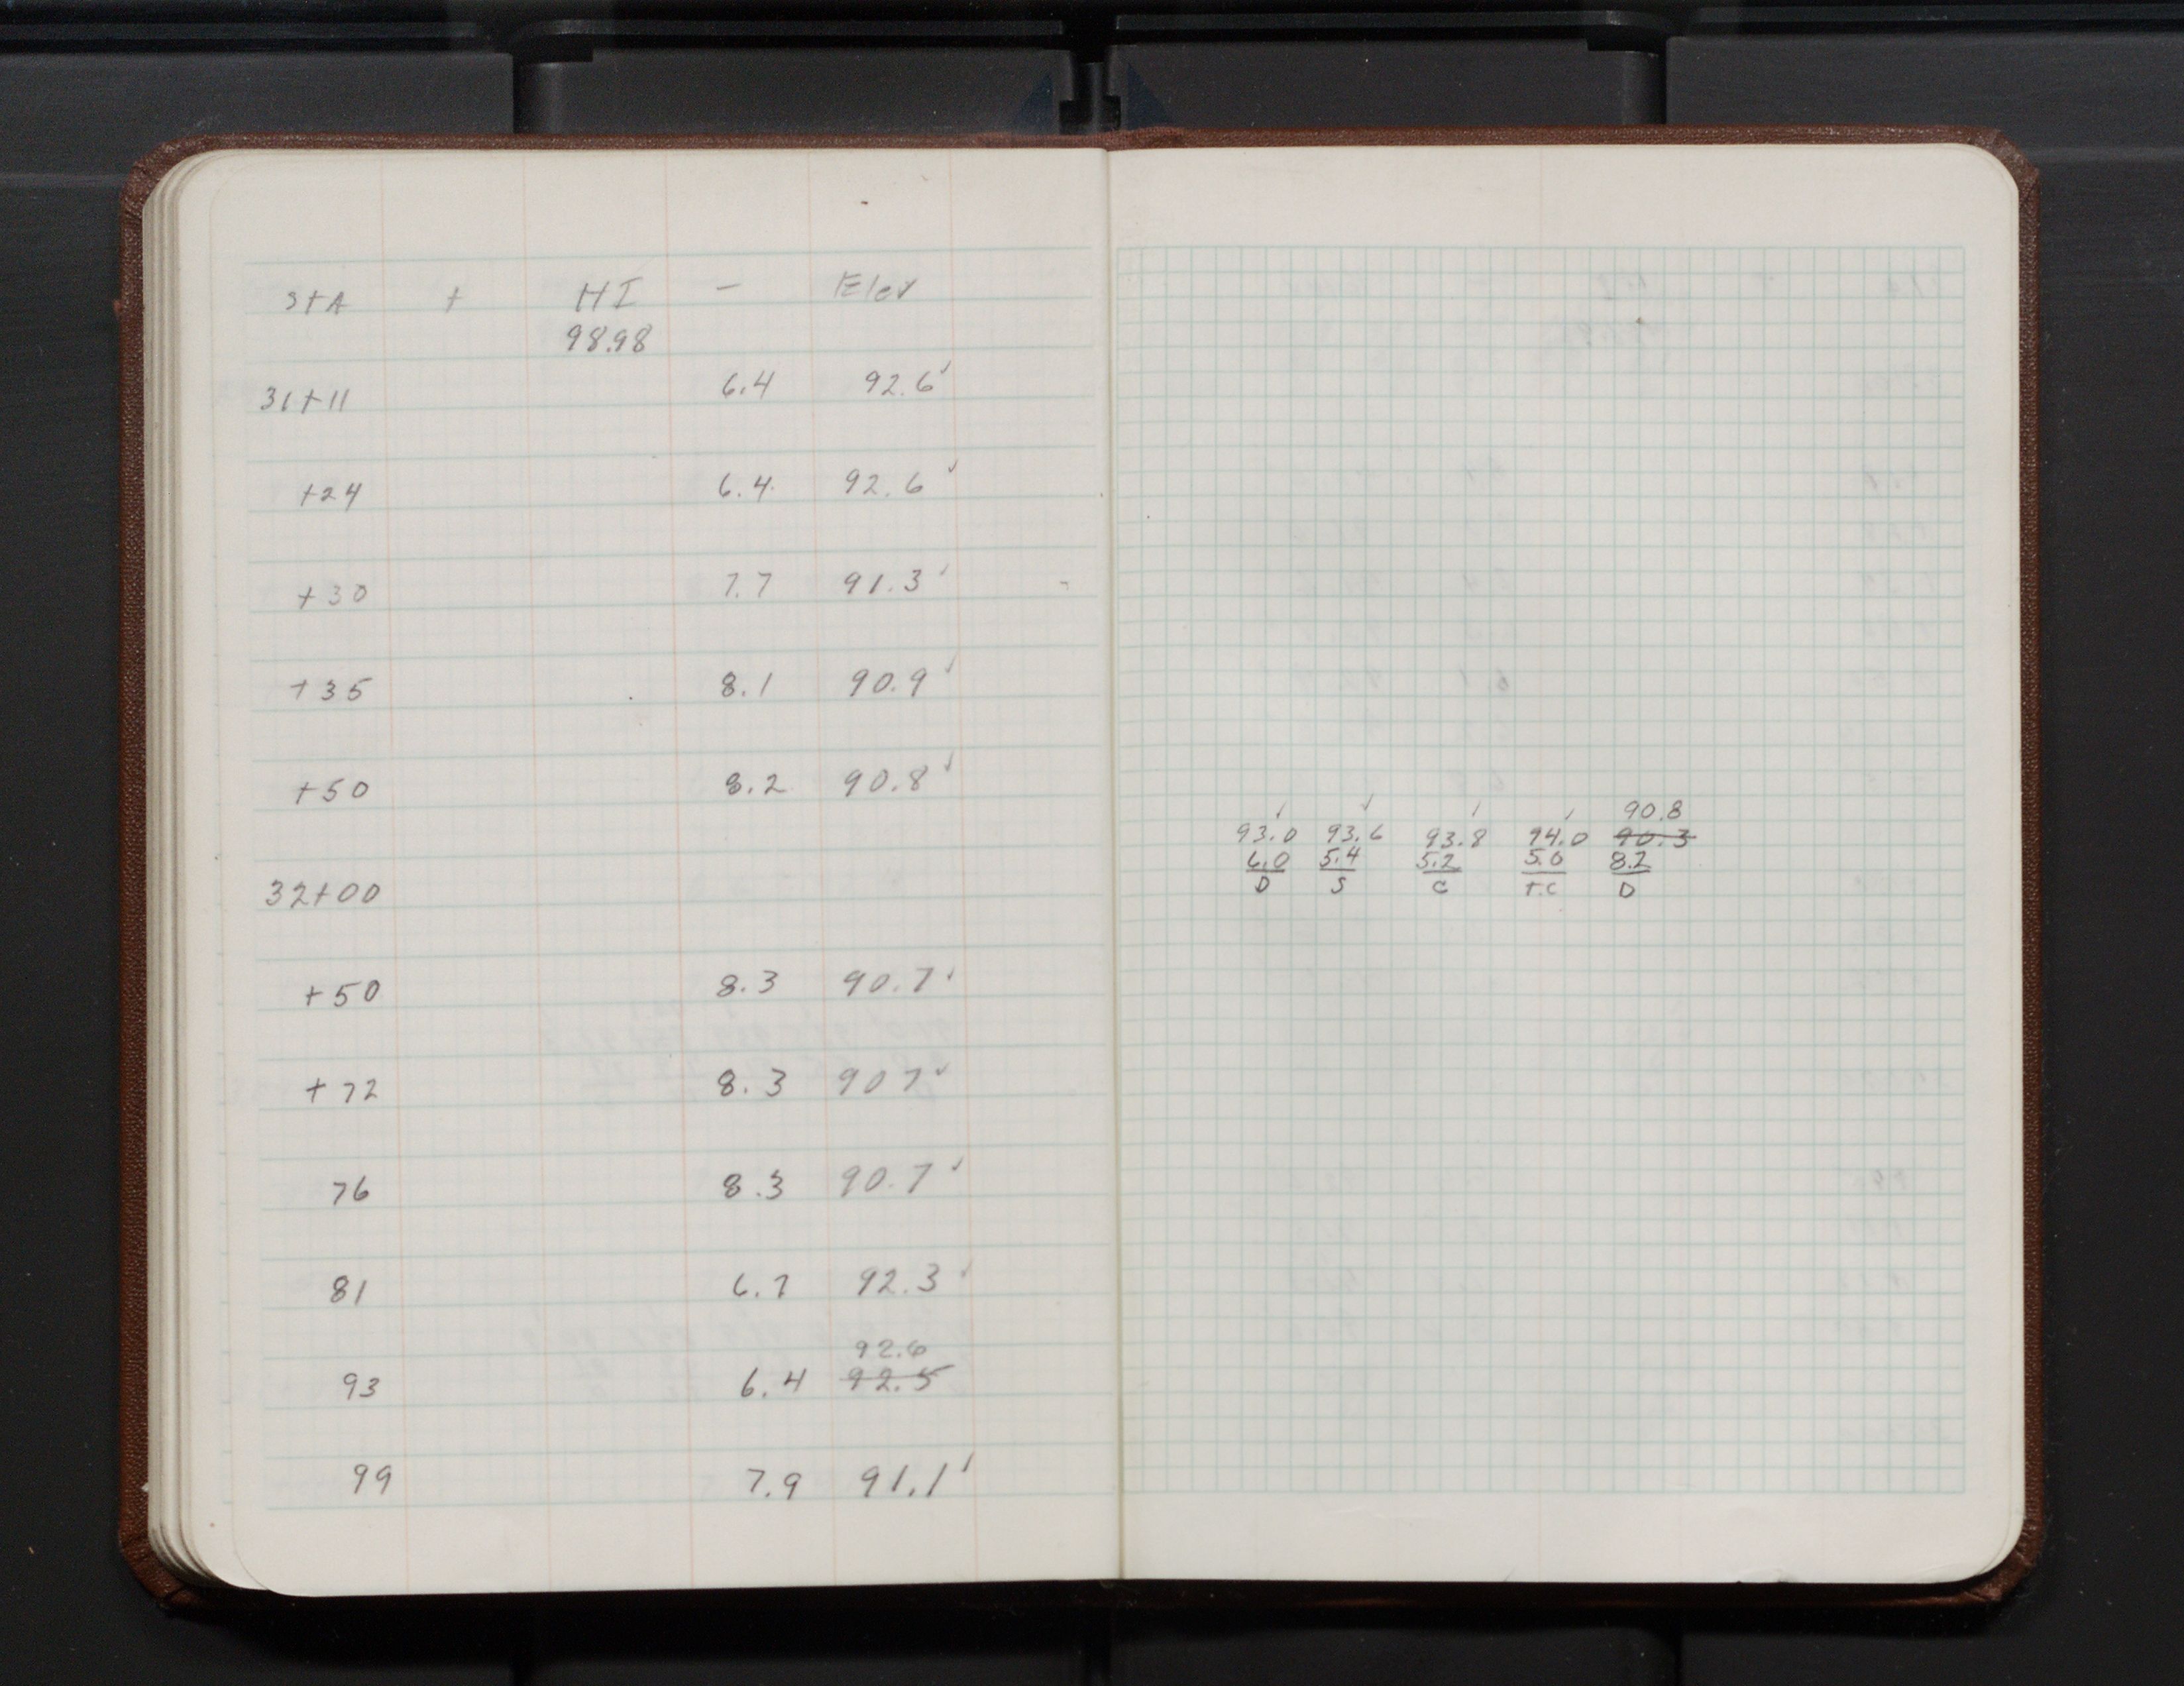 STA + HI - Elev
98.98
31+11 6.4 92.6✓
+24 6.4 92.6✓
+30 7.7 91.3✓
+35 8.1 90.9✓
+50 8.2 90.8✓
32+00
+50 8.3 90.7✓
+72 8.3 90 7✓
76 8.3 90.7✓
81 6.7 92.3✓
92.6
93 6.4 92.5
99 7.9 91.1✓
90.8
93.0 93.6 93.8 94.0 90.3
6.0 5.4 5.2 5.0 8.2
D S C T.C D